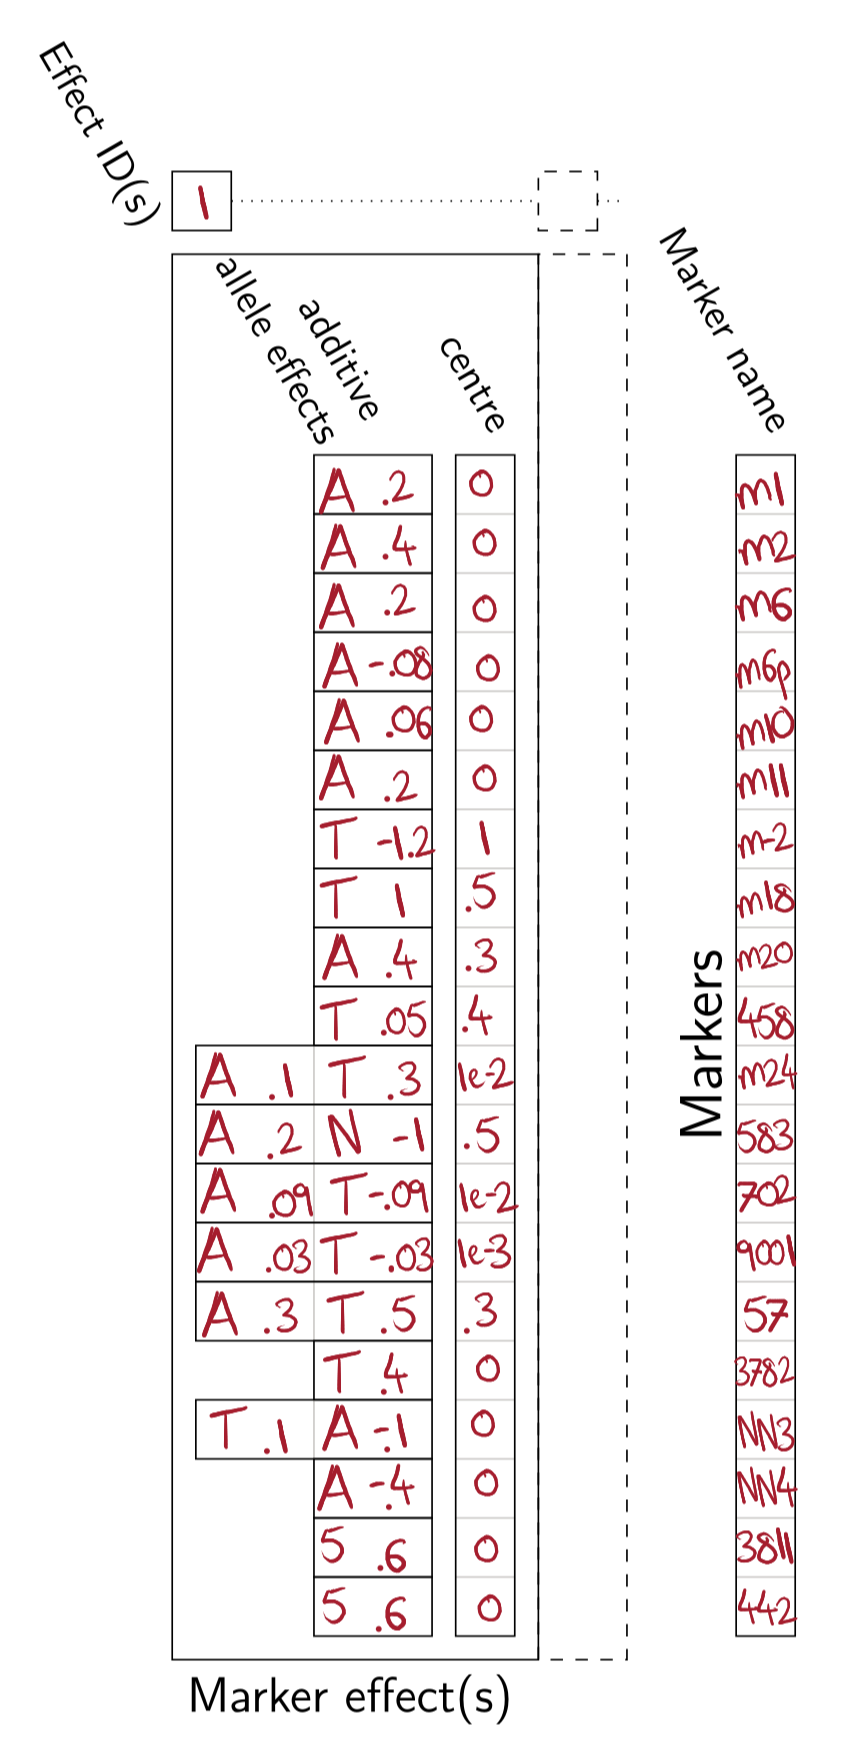 Effect ID(s)
1
allele effects
additive
centre
Marker name
A .2 0 m1
A .4 0 m2
A .2 0 m6
A -.08 0 m6p
A .06 0 m10
A .2 0 m11
T -1.2 1 m-2
T 1 .5 m18
A .4 .3 m20
T .05 .4 458
A .1 T .3 1e-2 m24
A .2 N -1 .5 583
A .09 T -.09 1e-2 702
A .03 T -.03 1e-3 9001
A .3 T .5 .3 57
T .4 0 3782
T .1 A -.1 0 NN3
A -.4 0 NN4
5 .6 0 3811
5 .6 0 442
Markers
Marker effect(s)